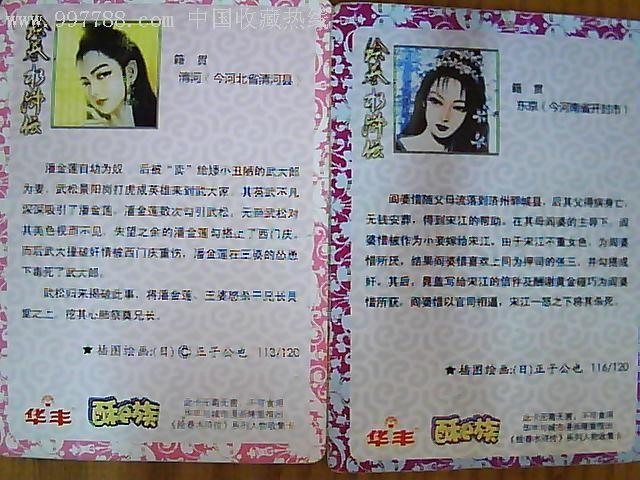 www.997788.com 中国收藏热线
绘卷水浒传
籍 贯
清河（今河北省清河县）
潘金莲自幼为奴 后被“卖”给矮小丑陋的武大郎
为妻，武松景阳岗打虎成英雄来到武大家，其英武不凡
深深吸引了潘金莲，潘金莲数次勾引武松，无奈武松对
其美色视而不见，失望之余的潘金莲勾搭上了西门庆，
而后武大撞破奸情被西门庆重伤，潘金莲在王婆的怂恿
下毒死了武大郎。
武松归来揭破此事，将潘金莲、王婆怒杀于兄长灵
堂之上，挖其心肺祭奠兄长。
★插图绘画:(日)©正子公也 113/120
华丰
酥易族
此卡无毒无害，不可食用
《绘卷水浒传》系列人物收集卡
绘卷水浒传
籍 贯
东京（今河南省开封市）
阎婆惜随父母流落到济州郓城县，后其父得病身亡，
无钱安葬，得到宋江的帮助。在其母阎婆的主导下，阎
婆惜被作为小妾嫁给宋江，由于宋江不重女色，为阎婆
惜所厌，结果阎婆惜喜欢上同为押司的张三，并勾搭成
奸。其后，晁盖写给宋江的信件及酬谢黄金碰巧为阎婆
惜所获，阎婆惜以官司相逼，宋江一怒之下将其杀死。
★插图绘画:(日)正子公也 116/120
华丰
酥易族
此卡无毒无害，不可食用
《绘卷水浒传》系列人物收集卡